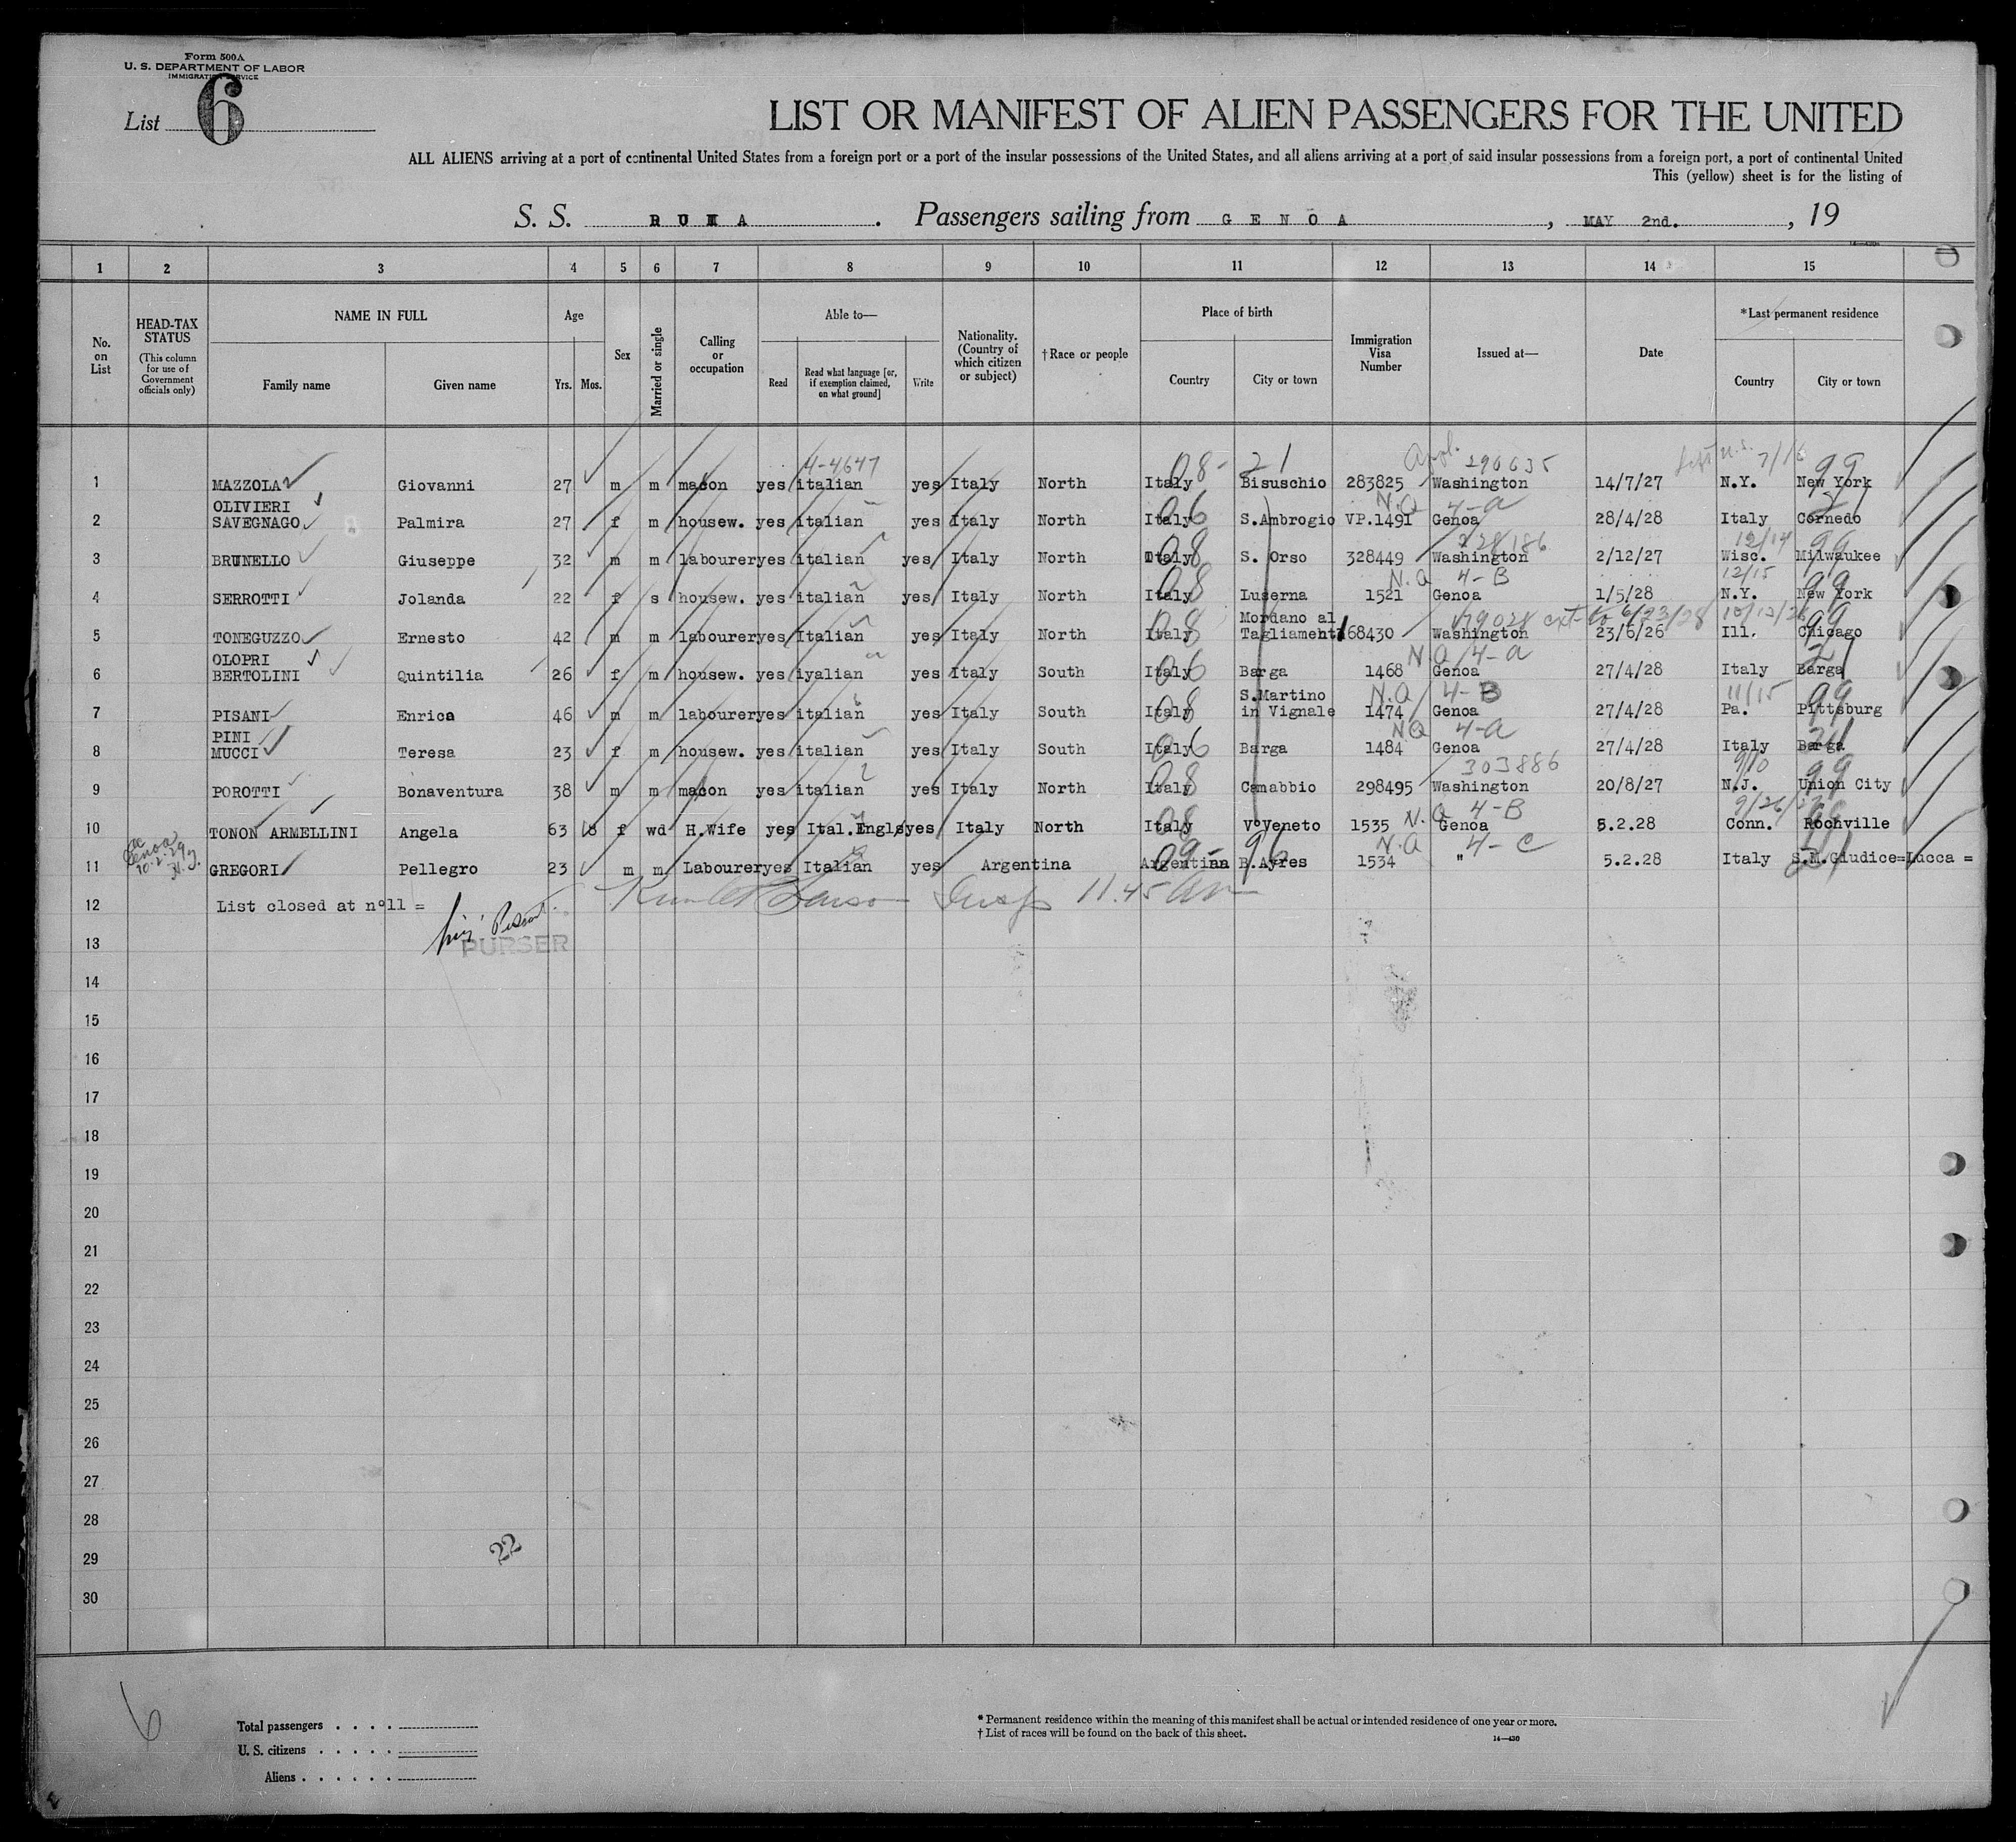 Form 500A
U. S. DEPARTMENT OF LABOR
IMMIGRATION SERVICE
List 6
LIST OR MANIFEST OF ALIEN PASSENGERS FOR THE UNITED
ALL ALIENS arriving at a port of continental United States from a foreign port or a port of the insular possessions of the United States, and all aliens arriving at a port of said insular possessions from a foreign port, a port of continental United
This (yellow) sheet is for the listing of
S. S. ROMA . Passengers sailing from GENOA , MAY 2nd. , 19
1 2 3 4 5 6 7 8 9 10 11 12 13 14 15
No. on List
HEAD-TAX STATUS (This column for use of Government officials only)
NAME IN FULL Family name Given name
Age Yrs. Mos.
Sex
Married or single
Calling or occupation
Able to— Read Read what language [or, if exemption claimed, on what ground] Write
Nationality. (Country of which citizen or subject)
†Race or people
Place of birth Country City or town
Immigration Visa Number
Issued at—
Date
*Last permanent residence Country City or town
4-4647 08- 21 290635 7/16 99
1 MAZZOLA Giovanni 27 m m mason yes italian yes Italy North Italy Bisuschio 283825 Washington 14/7/27 N.Y. New York
OLIVIERI 06 N.Q 4-a 21
2 SAVEGNAGO Palmira 27 f m housew. yes italian yes Italy North Italy S.Ambrogio VP.1491 Genoa 28/4/28 Italy Cornedo
08 328186 12/14 99
3 BRUNELLO Giuseppe 32 m m labourer yes italian yes Italy North Italy S. Orso 328449 Washington 2/12/27 Wisc. Milwaukee
08 N.Q 4-B 12/15 99
4 SERROTTI Jolanda 22 f s housew. yes italian yes Italy North Italy Luserna 1521 Genoa 1/5/28 N.Y. New York
08 Mordano al 179028 ext to 6/23/28 10/12/26 99
5 TONEGUZZO Ernesto 42 m m labourer yes Italian yes Italy North Italy Tagliament 168430 Washington 23/6/26 Ill. Chicago
OLOPRI 06 N.Q 4-a 21
6 BERTOLINI Quintilia 26 f m housew. yes iyalian yes Italy South Italy Barga 1468 Genoa 27/4/28 Italy Barga
08 S.Martino N.Q 4-B 11/15 99
7 PISANI Enrico 46 m m labourer yes italian yes Italy South Italy in Vignale 1474 Genoa 27/4/28 Pa. Pittsburg
PINI 06 NQ 4-a 21
8 MUCCI Teresa 23 f m housew. yes italian yes Italy South Italy Barga 1484 Genoa 27/4/28 Italy Barga
08 303886 9/10 99
9 POROTTI Bonaventura 38 m m mason yes italian yes Italy North Italy Cmabbio 298495 Washington 20/8/27 N.J. Union City
08 N.Q 4-B
10 TONON ARMELLINI Angela 63 f wd H.Wife yes Ital.Engls yes Italy North Italy VoVeneto 1535 Genoa 5.2.28 Conn. Rochville
09- 96 N.Q 4-C 21
11 GREGORI Pellegro 23 m m Labourer yes Italian yes Argentina Argentina B.Ayres 1534 " 5.2.28 Italy S.M.Giudice=Lucca =
12 List closed at n°11 = Insp 11.45 am
13 PURSER
14
15
16
17
18
19
20
21
22
23
24
25
26
27
28
29 22
30
6
Total passengers
U. S. citizens
Aliens
* Permanent residence within the meaning of this manifest shall be actual or intended residence of one year or more.
† List of races will be found on the back of this sheet.
14—430